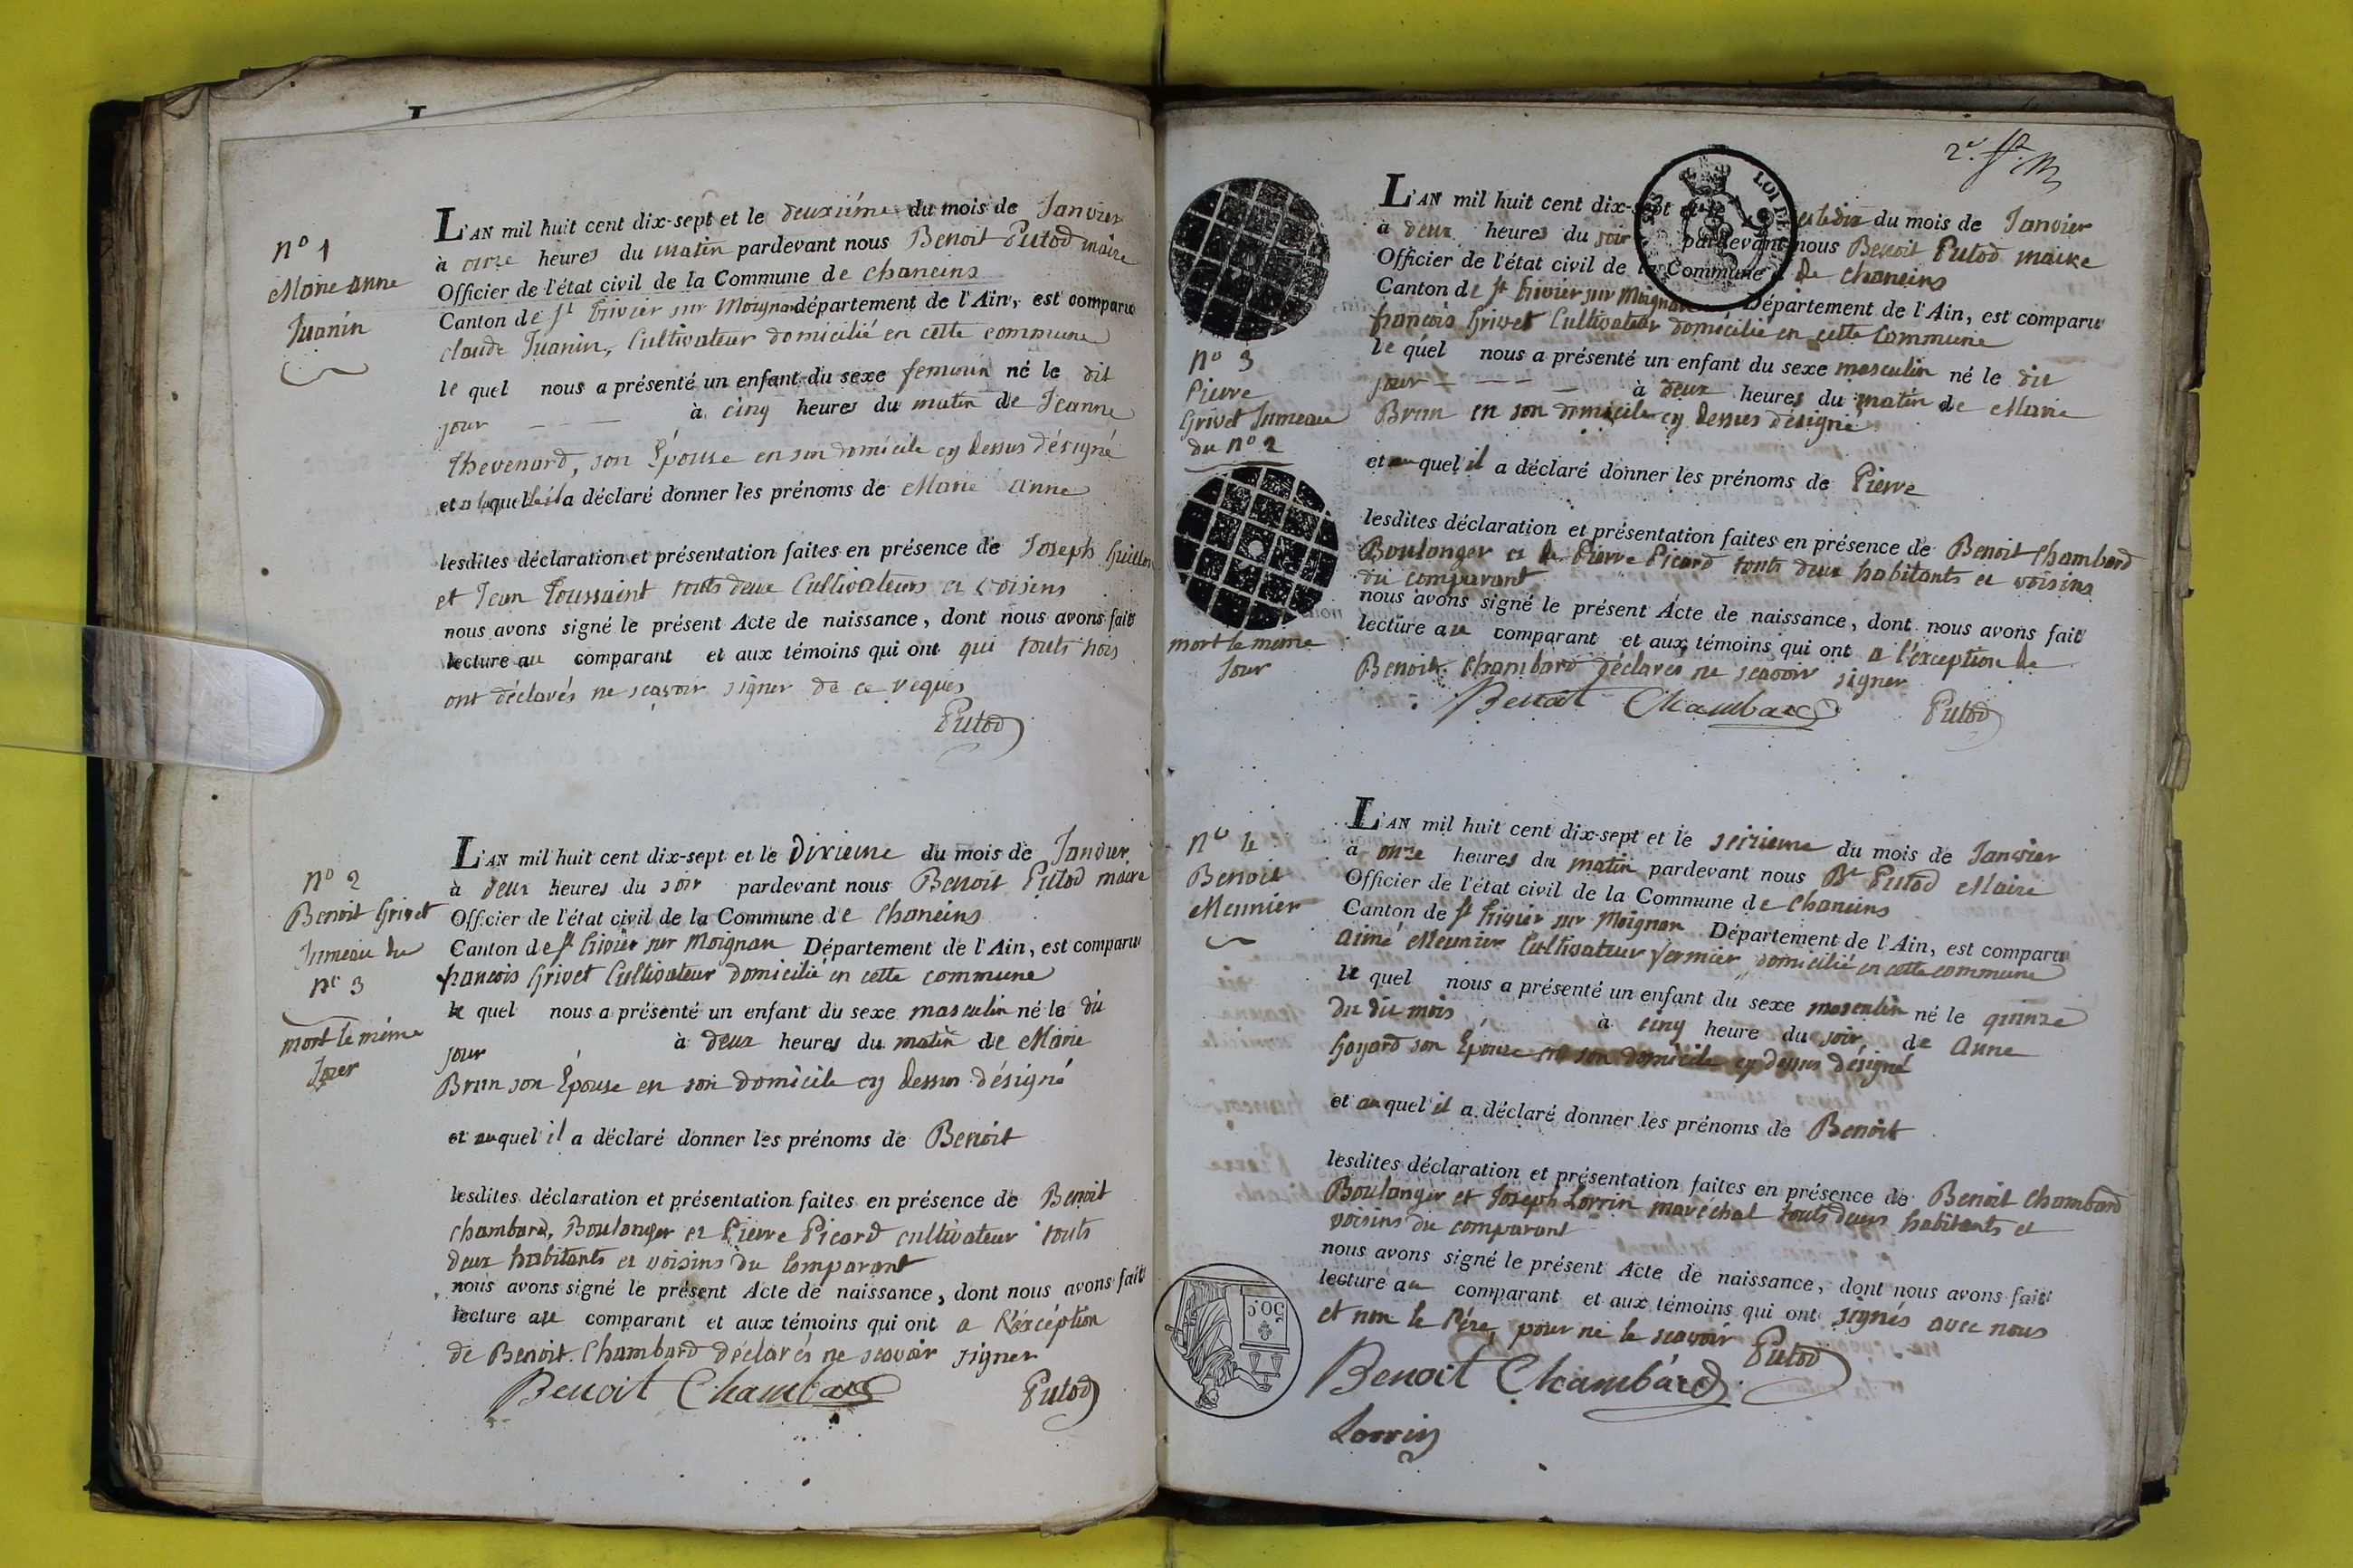 n° 1
Marie anne
Juanin
L'AN mil huit cent dix-sept et le deuxiéme du mois de Janvier
à onze heures du matin pardevant nous Benoit Putod maire
Officier de l'état civil de la Commune de chaneins
Canton de St trivier sur Moignan département de l'Ain, est comparu
claude Juanin, Cultivateur domicilié en cette commune
le quel nous a présenté un enfant du sexe feminin né le dit
jour à cinq heures du matin de Jeanne
Thevenard, son Épouse en son domicile cy dessus désigné
et a laquelle il a déclaré donner les prénoms de Marie anne
lesdites déclaration et présentation faites en présence de Joseph Guillon
et Jean Toussaint touts deux Cultivateurs et voisins
nous avons signé le présent Acte de naissance, dont nous avons fait
lecture au comparant et aux témoins qui ont qui touts trois
ont déclarés ne sçavoir signer de ce requis
Putod
n° 2
Benoit Grivet
Jumeau du
n° 3
mort le même
Jour
L'AN mil huit cent dix-sept et le dixieme du mois de Janvier
à deux heures du soir pardevant nous Benoit Putod maire
Officier de l'état civil de la Commune de chaneins
Canton de St trivier sur Moignan Département de l'Ain, est comparu
francois Grivet Cultivateur domicilié en cette commune
le quel nous a présenté un enfant du sexe masculin né le dit
jour à deux heures du matin de Marie
Brun son Épouse en son domicile cy dessus désigné
et auquel il a déclaré donner les prénoms de Benoit
lesdites déclaration et présentation faites en présence de Benoit
chambard, Boulanger et Pierre Picard cultivateur touts
deux habitants et voisins du Comparant
nous avons signé le présent Acte de naissance, dont nous avons fait
lecture au comparant et aux témoins qui ont a l'éxcéption
de Benoit Chambard déclarés ne scavoir signer
Benoit Chambard Putod
LOI DE
n° 3
Pierre
Grivet Jumeau
du n° 2
mort le meme
Jour
L'AN mil huit cent dix-sept et le dix du mois de Janvier
à deux heures du soir pardevant nous Benoit Putod maire
Officier de l'état civil de la Commune de chaneins
Canton de St trivier sur Moignan Département de l'Ain, est comparu
francois Grivet Cultivateur domicilié en cette Commune
le quel nous a présenté un enfant du sexe masculin né le dit
jour à deux heures du matin de Marie
Brun en son domicile cy dessus désigné
et auquel il a déclaré donner les prénoms de Pierre
lesdites déclaration et présentation faites en présence de Benoit Chambard
Boulanger et de Pierre Picard touts deux habitants et voisins
du comparant
nous avons signé le présent Acte de naissance, dont nous avons fait
lecture au comparant et aux témoins qui ont a l'éxception de
Benoit Chambard déclarés ne sçavoir signer
Benoit Chambard Putod
n° 4
Benoit
Meunier
L'AN mil huit cent dix-sept et le seizieme du mois de Janvier
à onze heures du matin pardevant nous Bt Putod Maire
Officier de l'état civil de la Commune de Chaneins
Canton de St trivier sur Moignan Département de l'Ain, est comparu
aimé Meunier Cultivateur fermier domicilié en cette commune
le quel nous a présenté un enfant du sexe masculin né le quinze
du dit mois à cinq heure du soir de Anne
Goyard son Épouse en son domicile cy dessus désigné
et auquel il a déclaré donner les prénoms de Benoit
lesdites déclaration et présentation faites en présence de Benoit Chambard
Boulanger et Joseph Lorrin maréchal touts deux habitants et
voisins du comparant
nous avons signé le présent Acte de naissance, dont nous avons fait
lecture au comparant et aux témoins qui ont signés avec nous
et non le Père, pour ne le scavoir Putod
Benoit Chambard
Lorrin
50 c